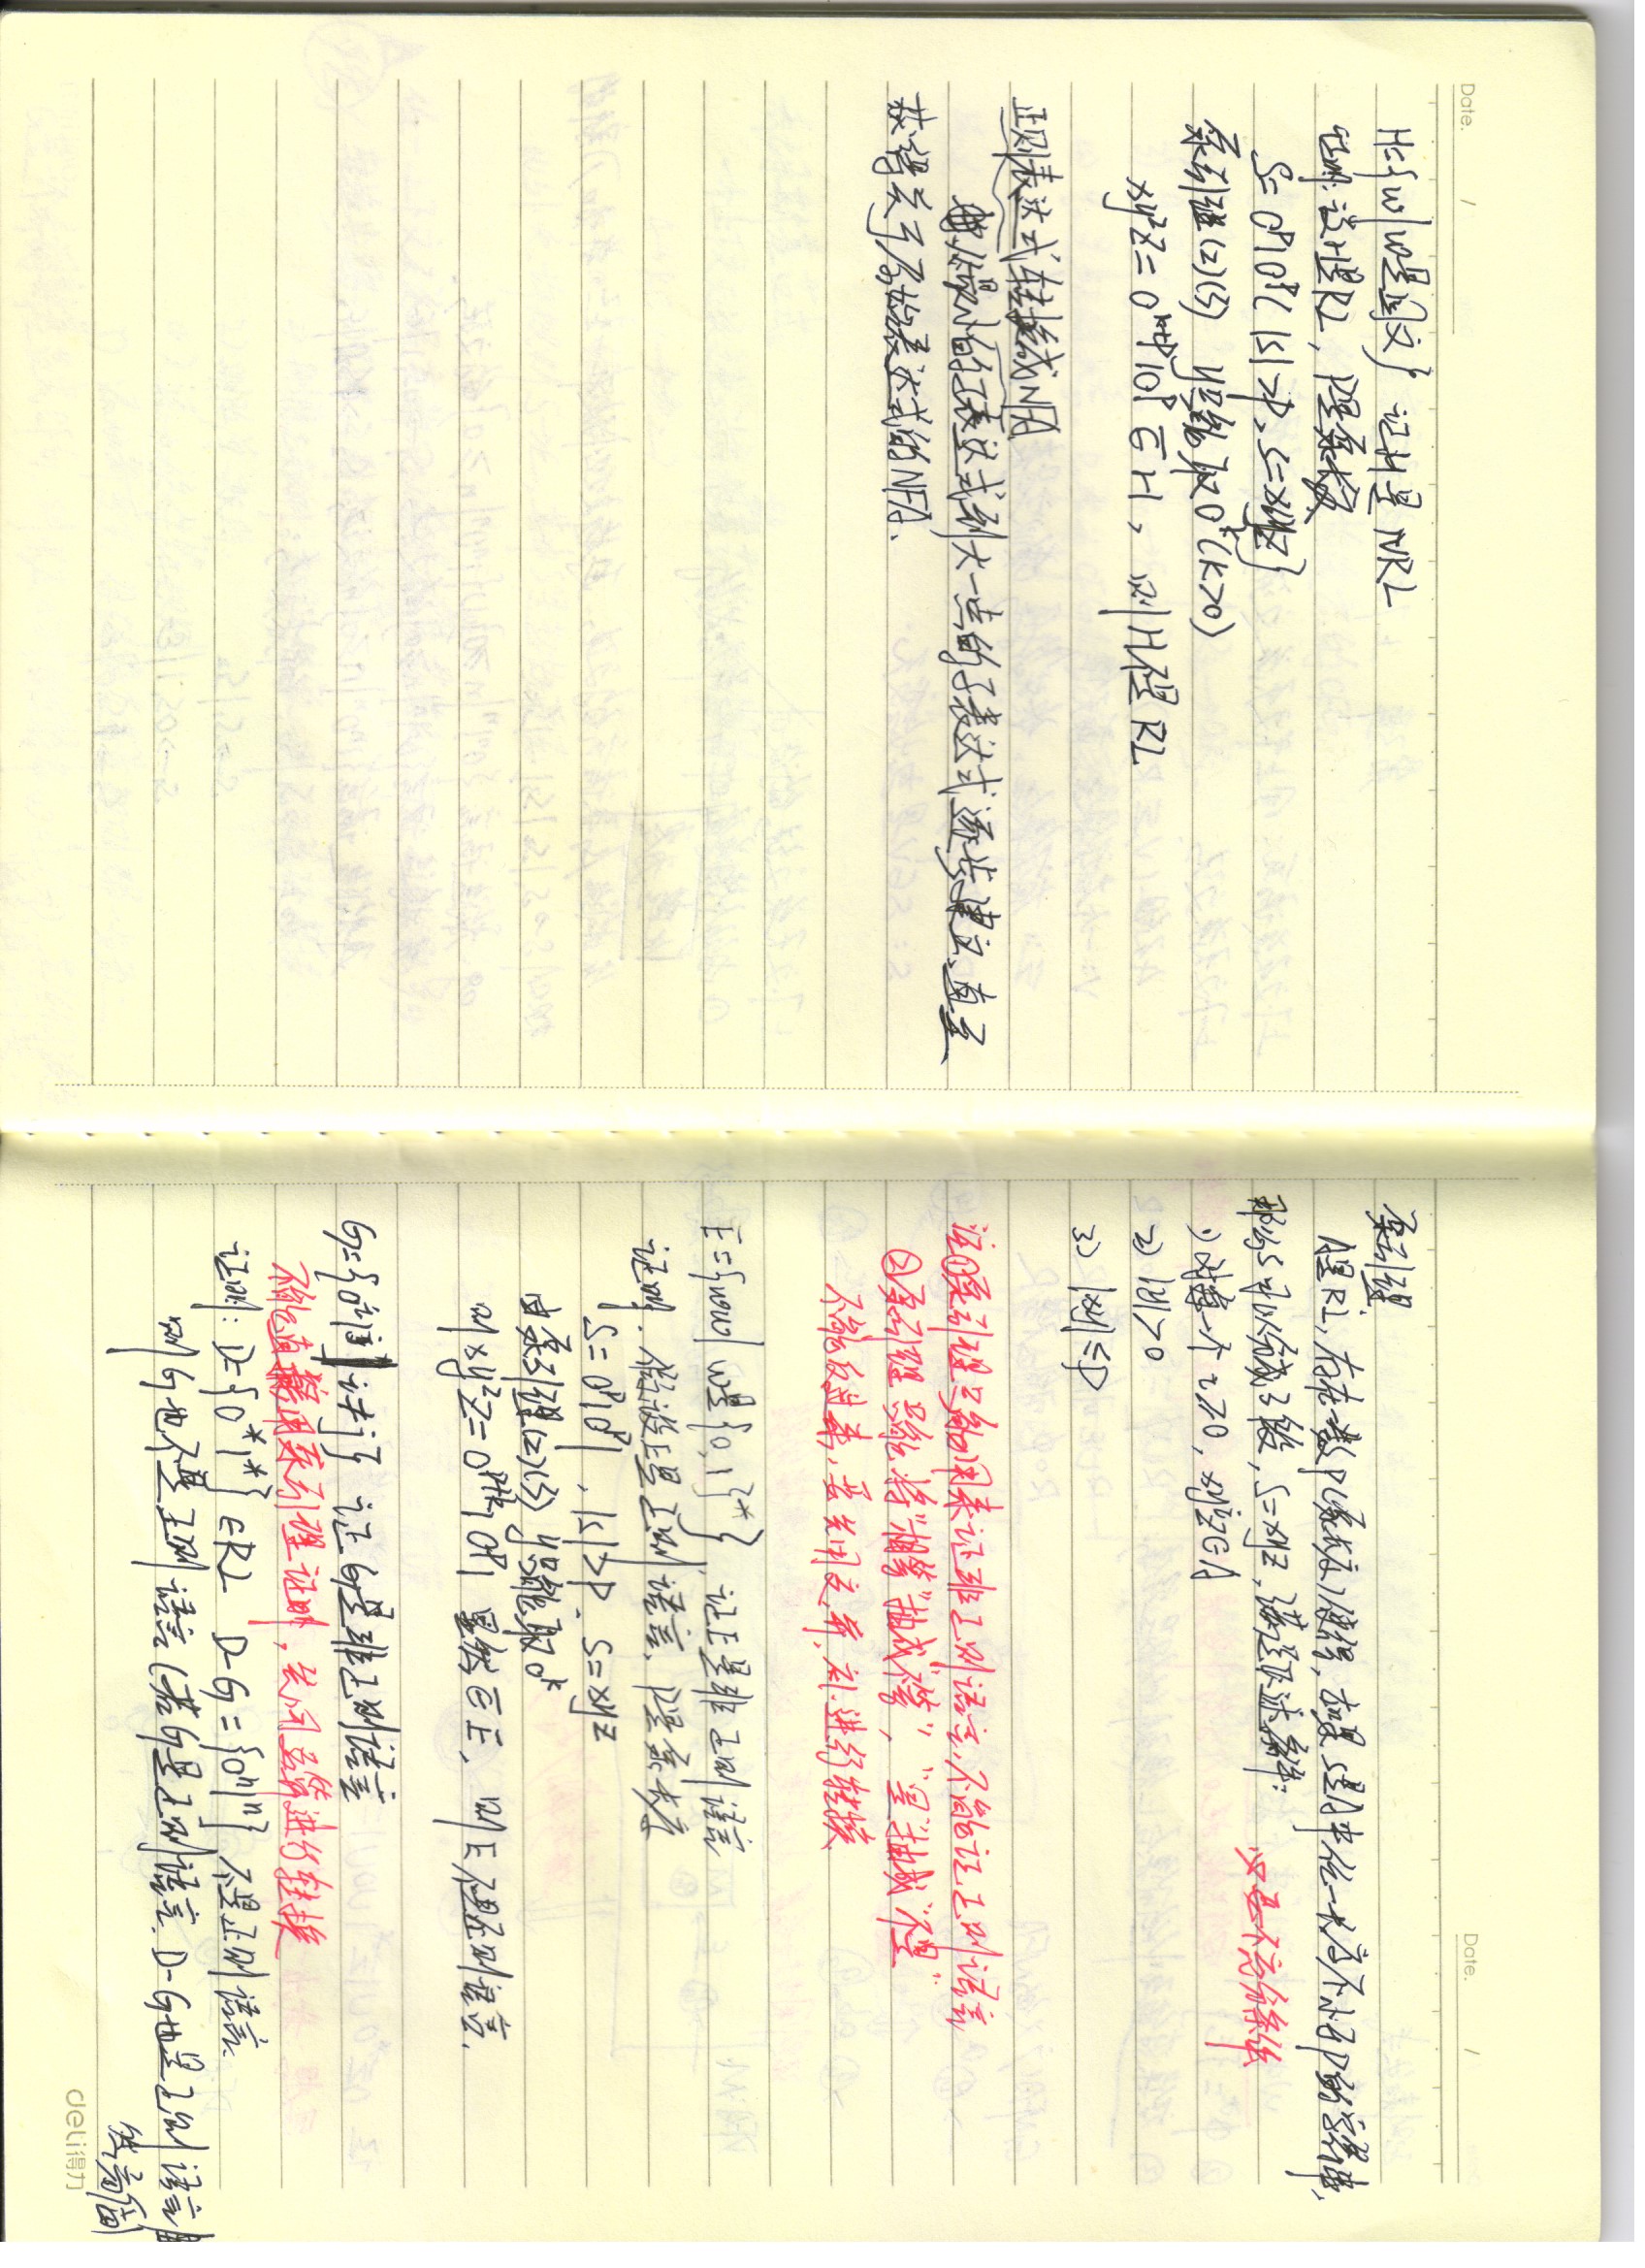 Date. /
H={w|w是回文} 证H是NRL
证明:设H是RL, P是泵长度
S=0ᵖ10ᵖ(|s|>p, S=xyz}
泵引理(2)(3) y只能取0ᵏ(k>0)
xy²z=0ᵏ⁺ᵖ10ᵖ ∈̅ H, 则H不是RL
正则表达式转换成NFA
从最小的子表达式到大一点的子表达式逐步建立、直至
获得关于原始表达式的NFA.
Date. /
泵引理.
A是RL, 存在一数P(泵长度)使得, 如果S是A中任一长度不小于P的字符串,
那么S可以分成3段, S=xyz, 满足下述条件:
必要不充分条件
1) 对每一个i≥0, xyⁱz∈A
2) |y|>0
3) |xy|≤p
注①泵引理只能用来证非正则语言,不能证正则语言
②泵引理只能将"相等"抽成"不等", "是"抽成"不是"
不能反过来, 要先用交,并,补.进行转换
E={ww|w是{0,1}*}, 证E是非正则语言
证明. 假设E是正则语言, P是泵长度
S=0ᵖ10ᵖ1, |s|>p. S=xyz
由泵引理(2)(3) y只能取0ᵏ
则xy²z=0ᵖ⁺ᵏ10ᵖ1 显然 ∈̅ E, 则E不是正则语言.
G={0ⁱ1ʲ|i≠j} 证G是非正则语言
不能直接用泵引理证明, 先用运算进行转换
证明: D={0*1*}∈RL D-G={0ⁿ1ⁿ} 不是正则语言.
则G也不是正则语言(若G是正则语言. D-G也是正则语言
deli得力